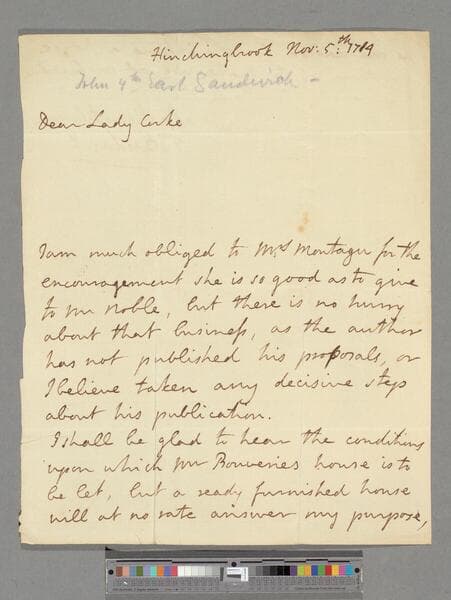 Hinchingbrook Nov: 5.th 1784
John 4th Earl Sandwich -
Dear Lady Corke
I am much obliged to Mrs Montagu for the
encouragement she is so good as to give
to Mr Noble, but there is no hurry
about that business, as the author
has not published his proposals, or
I believe taken any decisive steps
about his publication.
I shall be glad to hear the conditions
upon which Mr Bouveries house is to
be let, but a ready furnished house
will at no rate answer my purpose,